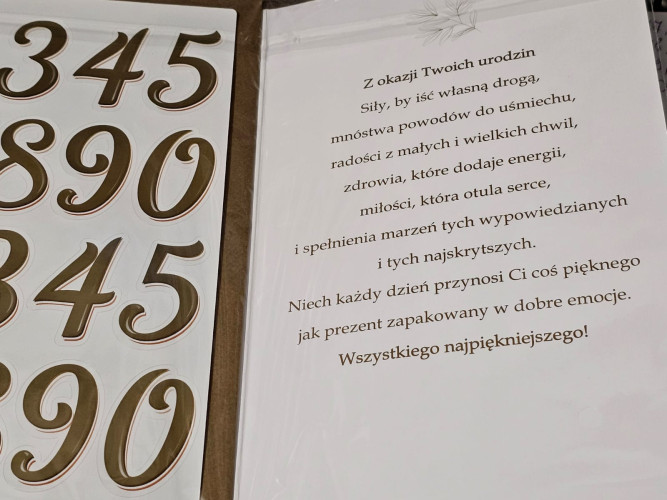 345
890
345
890
Z okazji Twoich urodzin
Siły, by iść własną drogą,
mnóstwa powodów do uśmiechu,
radości z małych i wielkich chwil,
zdrowia, które dodaje energii,
miłości, która otula serce,
i spełnienia marzeń tych wypowiedzianych
i tych najskrytszych.
Niech każdy dzień przynosi Ci coś pięknego
jak prezent zapakowany w dobre emocje.
Wszystkiego najpiękniejszego!